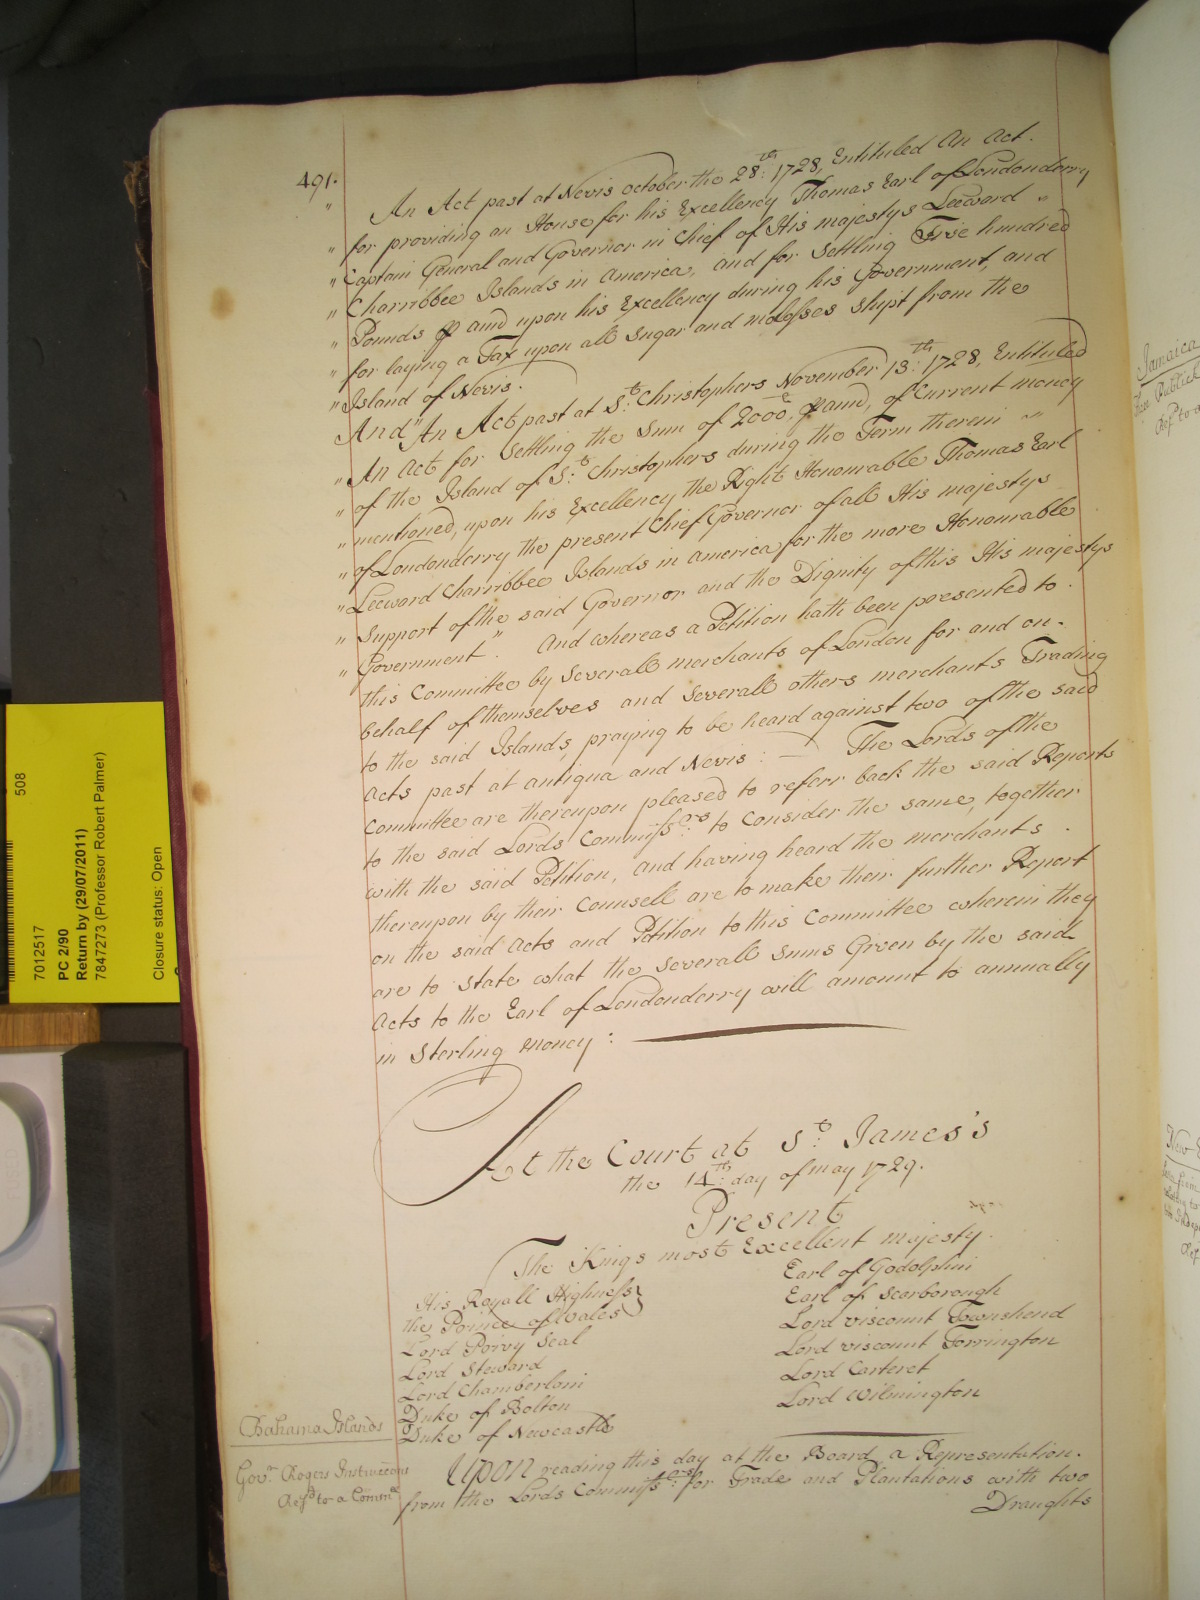 491.
" An Act past at Nevis October the 28:th 1728, Entituled An Act.
" for providing an House for his Excellency Thomas Earl of Londonderry
" Captain General and Governor in Chief of His majestys Leeward "
" Charribbee Islands in America, and for Settling Five hundred
" Pounds ⅌ and upon his Excellency during his Government, and
" for laying a Tax upon all Sugar and molasses shipt from the
" Island of Nevis.
And "An Act past at St: Christophers November 13:th 1728, Entituled
" An Act for Settling the Sum of 2000£ ⅌ and, of Current money
" of the Island of St: Christophers during the Term therein " "
" mentioned, upon his Excellency the Right Honourable Thomas Earl
" of Londonderry the present Chief Governor of all His majestys
" Leeward Charribbee Islands in America for the more Honourable
" Support of the said Governor and the Dignity of this His majestys
" Government." And whereas a Petition hath been presented to
this Committee by Severall merchants of London for and on
behalf of themselves and Severall others merchants Trading
to the said Islands, praying to be heard against two of the said
Acts past at Antigua and Nevis: — The Lords of the
Committee are thereupon pleased to referr back the said Reports
to the said Lords Commissrs: to Consider the same, together
with the said Petition, and having heard the merchants
thereupon by their Counsell are to make their further Report
on the said Acts and Petition to this Committee wherein they
are to state what the Severall sums Given by the said
Acts to the Earl of Londonderry will amount to annually
in Sterling money:
At the Court at St: James's
the 14:th day of may 1729.
Present
The Kings most Excellent majesty.
His Royall Highness
the Prince of Wales
Lord Privy Seal
Lord Steward
Lord Chamberlain
Duke of Bolton
Duke of Newcastle
Earl of Godolphin
Earl of Scarborough
Lord viscount Townshend
Lord viscount Torrington
Lord Carteret
Lord Wilmington
Bahama Islands
Govr. Rogers Instructions
Refd to a Commee
Upon reading this day at the Board a Representation
from the Lords Commissrs: for Trade and Plantations with two
Draughts
508
7012517
PC 2/90
Return by (29/07/2011)
7847273 (Professor Robert Palmer)
Closure status: Open
Jamaica